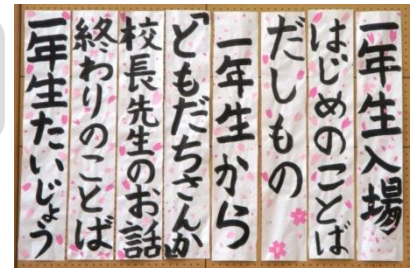 一年生入場
はじめのことば
だしもの
一年生から
「ともだちさんか」
校長先生のお話
終わりのことば
一年生たいじょう